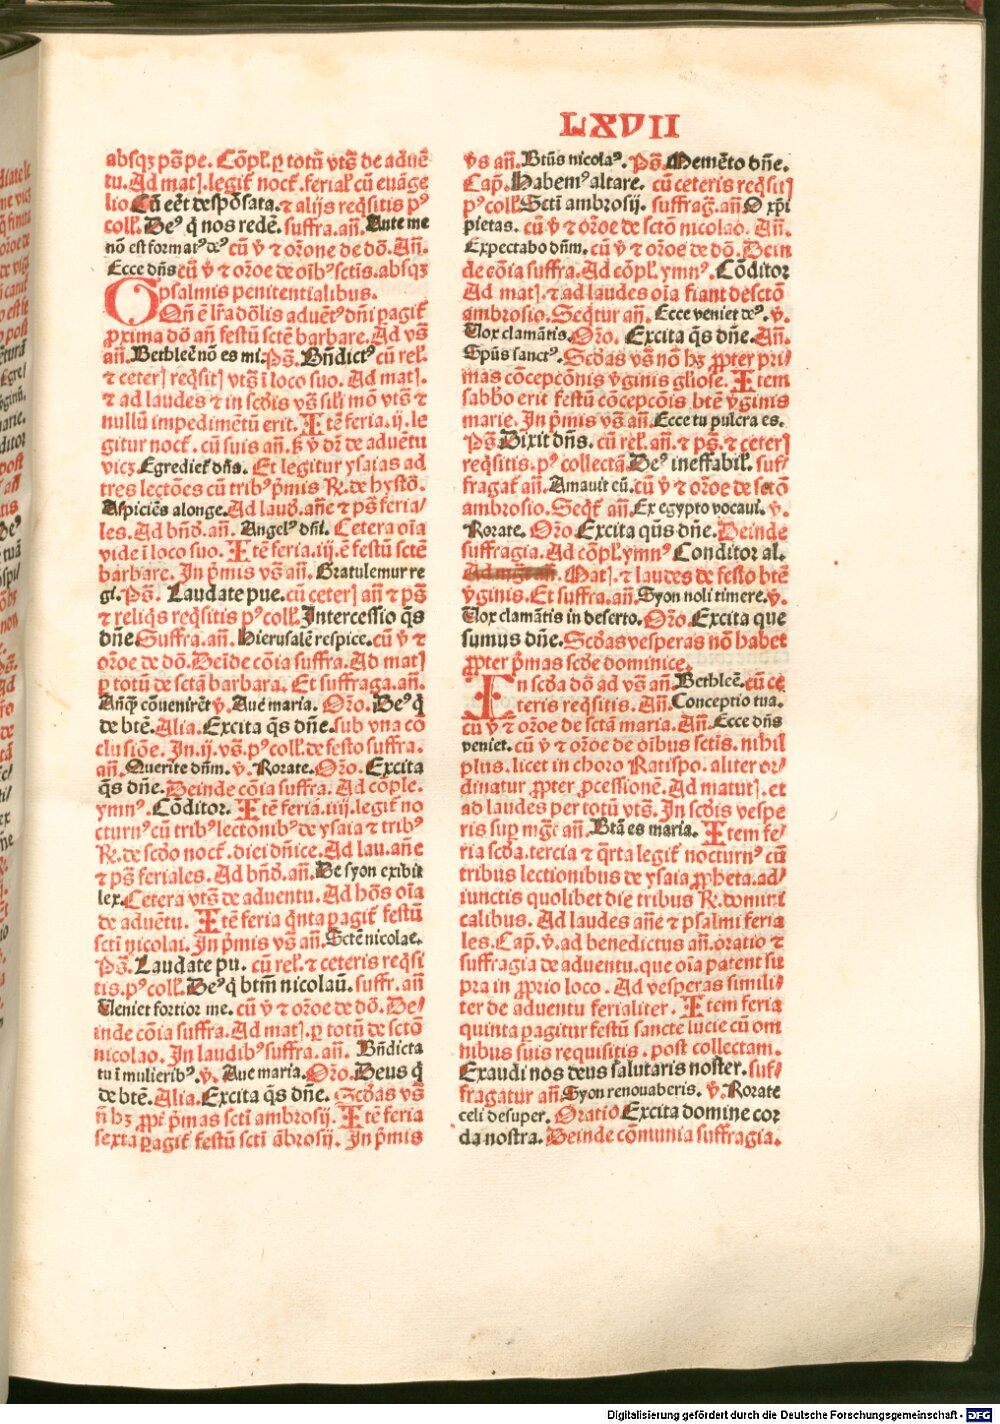 LXVII
absqꝫ ps̄ pe. Cōpl̵. ꝑ totū vts̄ de aduē
tu. Ad matꝭ. legit̵ noct̵. ferial̵ cū euāge
lio Cū eēt despōsata. ⁊ alijs reqsitis pꝰ
coll̵. Deꝰ q̄ nos redē. suffra. an̄. Ante me
nō est formatꝰ deꝰ cū v̄ ⁊ orōne de dō. An̄.
Ecce dn̄s cū v̄ ⁊ orōe de oībꝰ sctīs. absqꝫ
psalmis penitentialibus.
OQn̄ ē lr̄a dōlis aduētꝰ dn̄i pagit̵
proxima dō an̄ festū sctē barbare. Ad vs̄
an̄. Bethleē nō es mi. Ps̄. Bn̄dictꝰ cū rel̵.
⁊ ceterꝭ reqsitꝭ vts̄ ī loco suo. Ad matꝭ.
⁊ ad laudes ⁊ in scd̄is vs̄ sil̵i mō vts̄ ⁊
nullū impedimētū erit. Itē feria. ij. le
gitur noct̵. cū suis an̄. sꝫ v̄ dr̄ de aduētu
vicꝫ Egrediet̵ dn̄s. Et legitur ysaias ad
tres lectōes cū tribꝰ p̄mis R̵. de hystō.
Aspiciēs alonge. Ad laud̄. an̄e ⁊ ps̄ feria/
les. Ad bn̄d̄. an̄. Angelꝰ dn̄i. Cetera oīa
vide ī loco suo. Itē feria. iij. ē festū sctē
barbare. In p̄mis vs̄ an̄. Gratulemur re
gi. Ps̄. Laudate pue. cū ceterꝭ an̄ ⁊ ps̄
⁊ reliqs reqsitis pꝰ coll̵. Intercessio q̄s
dn̄e. Suffra. an̄. Hierusalē respice. cū v̄ ⁊
orōe de dō. Deīde cōia suffra. Ad matꝭ
ꝑ totū de sctā barbara. Et suffra. an̄.
Anq̄ȝ cōuenirēt v̄. Aue maria. Orō. Deꝰ q̄
de btē. Alia. Excita q̄s dn̄e. sub vna cō
clusiōe. In. ij. vs̄. pꝰ coll̵. de festo suffra.
an̄. Querite dn̄m. v̄. Rorate. Orō. Excita
q̄s dn̄e. Deinde cōia suffra. Ad cōple.
ymnꝰ. Cōditor. Itē feria. iiij. legit̵ no
cturnꝰ cū tribꝰ lectonibꝰ de ysaia ⁊ tribꝰ
R̵. de scd̄o noct̵. diei dn̄ice. Ad lau. an̄e
⁊ ps̄ feriales. Ad bn̄d̄. an̄. De syon exibit
lex. Cetera vts̄ de aduentu. Ad hōs oīa
de aduētu. Itē feria q̄nta pagit̵ festū
sctī nicolai. In p̄mis vs̄ an̄. Sctē nicolae.
Ps̄. Laudate pu. cū rel̵. ⁊ ceteris reqsi
tis. pꝰ coll̵. Deꝰ q̄ btm̄ nicolaū. suffr. an̄
Ueniet fortior me. cū v̄ ⁊ orōe de dō. De/
inde cōia suffra. Ad matꝭ. ꝑ totū de sctō
nicolao. In laudibꝰ suffra. an̄. Bn̄dicta
tu ī mulieribꝰ. v̄. Aue maria. Orō. Deus q̄
de btē. Alia. Excita q̄s dn̄e. Scd̄as vs̄
n̄ hꝫ ꝓpt̵ p̄mas sctī ambrosij. Itē feria
sexta pagit̵ festū sctī ābrosij. In p̄mis
vs̄ an̄. Btūs nicolaꝰ. Ps̄. Memēto dn̄e.
Cap̄. Habemꝰ altare. cū ceteris reqsitꝭ
pꝰ coll̵. Sctī ambrosij. suffrag̵. an̄ O xp̄i
pietas. cū v̄ ⁊ orōe de sctō nicolao. An̄.
Expectabo dn̄m. cū v̄ ⁊ orōe de dō. Dein
de cōia suffra. Ad cōpl̵. ymnꝰ. Cōditor
Ad matꝭ. ⁊ ad laudes oīa fiant de sctō
ambrosio. Seq̄tur an̄. Ecce veniet deꝰ. v̄.
Uox clamātis. Orō. Excita q̄s dn̄e. An̄.
Spūs sanctꝰ. Scd̄as vs̄ nō hꝫ ꝓpter pri/
mas cōcepcōnis v̄ginis gl̵iose. Item
sabbō erit festū cōcepcōnis btē v̄ginis
marie. In p̄mis vs̄ an̄. Ecce tu pulcra es.
Ps̄ Dixit dn̄s. cū rel̵. an̄. ⁊ ps̄. ⁊ ceterꝭ
reqsitis. pꝰ collectā. Deꝰ ineffabil̵. suf/
fragat̵ an̄. Amauit eū. cū v̄ ⁊ orōe de sctō
ambrosio. Seqt̵ an̄. Ex egypto vocaui. v̄.
Rorate. Orō Excita qūs dn̄e. Deinde
suffragia. Ad cōpl̵. ymnꝰ Conditor al.
Matꝭ. ⁊ laudes de festo btē
v̄ginis. Et suffra. an̄. Syon noli timere. v̄.
Uox clamātis in deserto. Orō. Excita que
sumus dn̄e. Scd̄as vesperas nō habet
ꝓpter p̄mas scd̄e dominice.
In scd̄a dō ad vs̄ an̄. Bethleē. cū ce
teris reqsitis. An̄. Conceptio tua.
cū v̄ ⁊ orōe de sctā maria. An̄. Ecce dn̄s
veniet. cū v̄ ⁊ orōe de oībus sctīs. nihil
plus. licet in choro Ratispō. aliter or/
dinatur ꝓpter ꝓcessionē. Ad maturꝭ. et
ad laudes per totū vts̄. In scd̄is vespe
ris suꝑ mgt̄ an̄. Btā es maria. Item fe/
ria scd̄a. tercia ⁊ q̄rta legit̵ nocturnꝰ cū
tribus lectionibus de ysaia ꝓpheta. ad/
iunctis quolibet die tribus R̵. domini
calibus. Ad laudes an̄e ⁊ psalmi feria
les. Cap̄. v̄. ad benedictus an̄. oratio ⁊
suffragia de aduentu. que oīa patent su
pra in ꝓprio loco. Ad vesperas simili/
ter de aduentu ferialiter. Item feria
quinta pagitur festū sancte lucie cū om
nibus suis requisitis. post collectam.
Exaudi nos deus salutaris noster. suf/
fragatur an̄ Syon renouaberis. v̄. Rorate
celi desuper. Oratio Excita domine cor
da nostra. Deinde cōmunia suffragia.
Digitalisierung gefördert durch die Deutsche Forschungsgemeinschaft - DFG